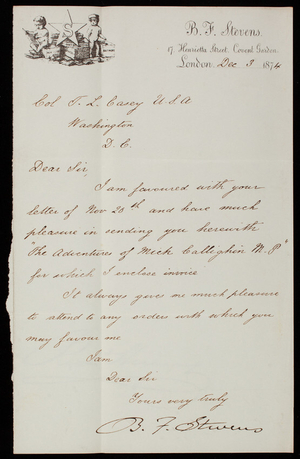 B. F. Stevens.
17 Henrietta Street, Covent Garden.
London, Dec 3 1874
Col T. L. Casey U.S.A
Washington
D. C.
Dear Sir,
I am favoured with your
letter of Nov 20th and have much
pleasure in sending you herewith
"The Adventures of Mick Callighin M. P"
for which I enclose invoice
It always gives me much pleasure
to attend to any orders with which you
may favour me
I am
Dear Sir
Yours very truly
B. F. Stevens